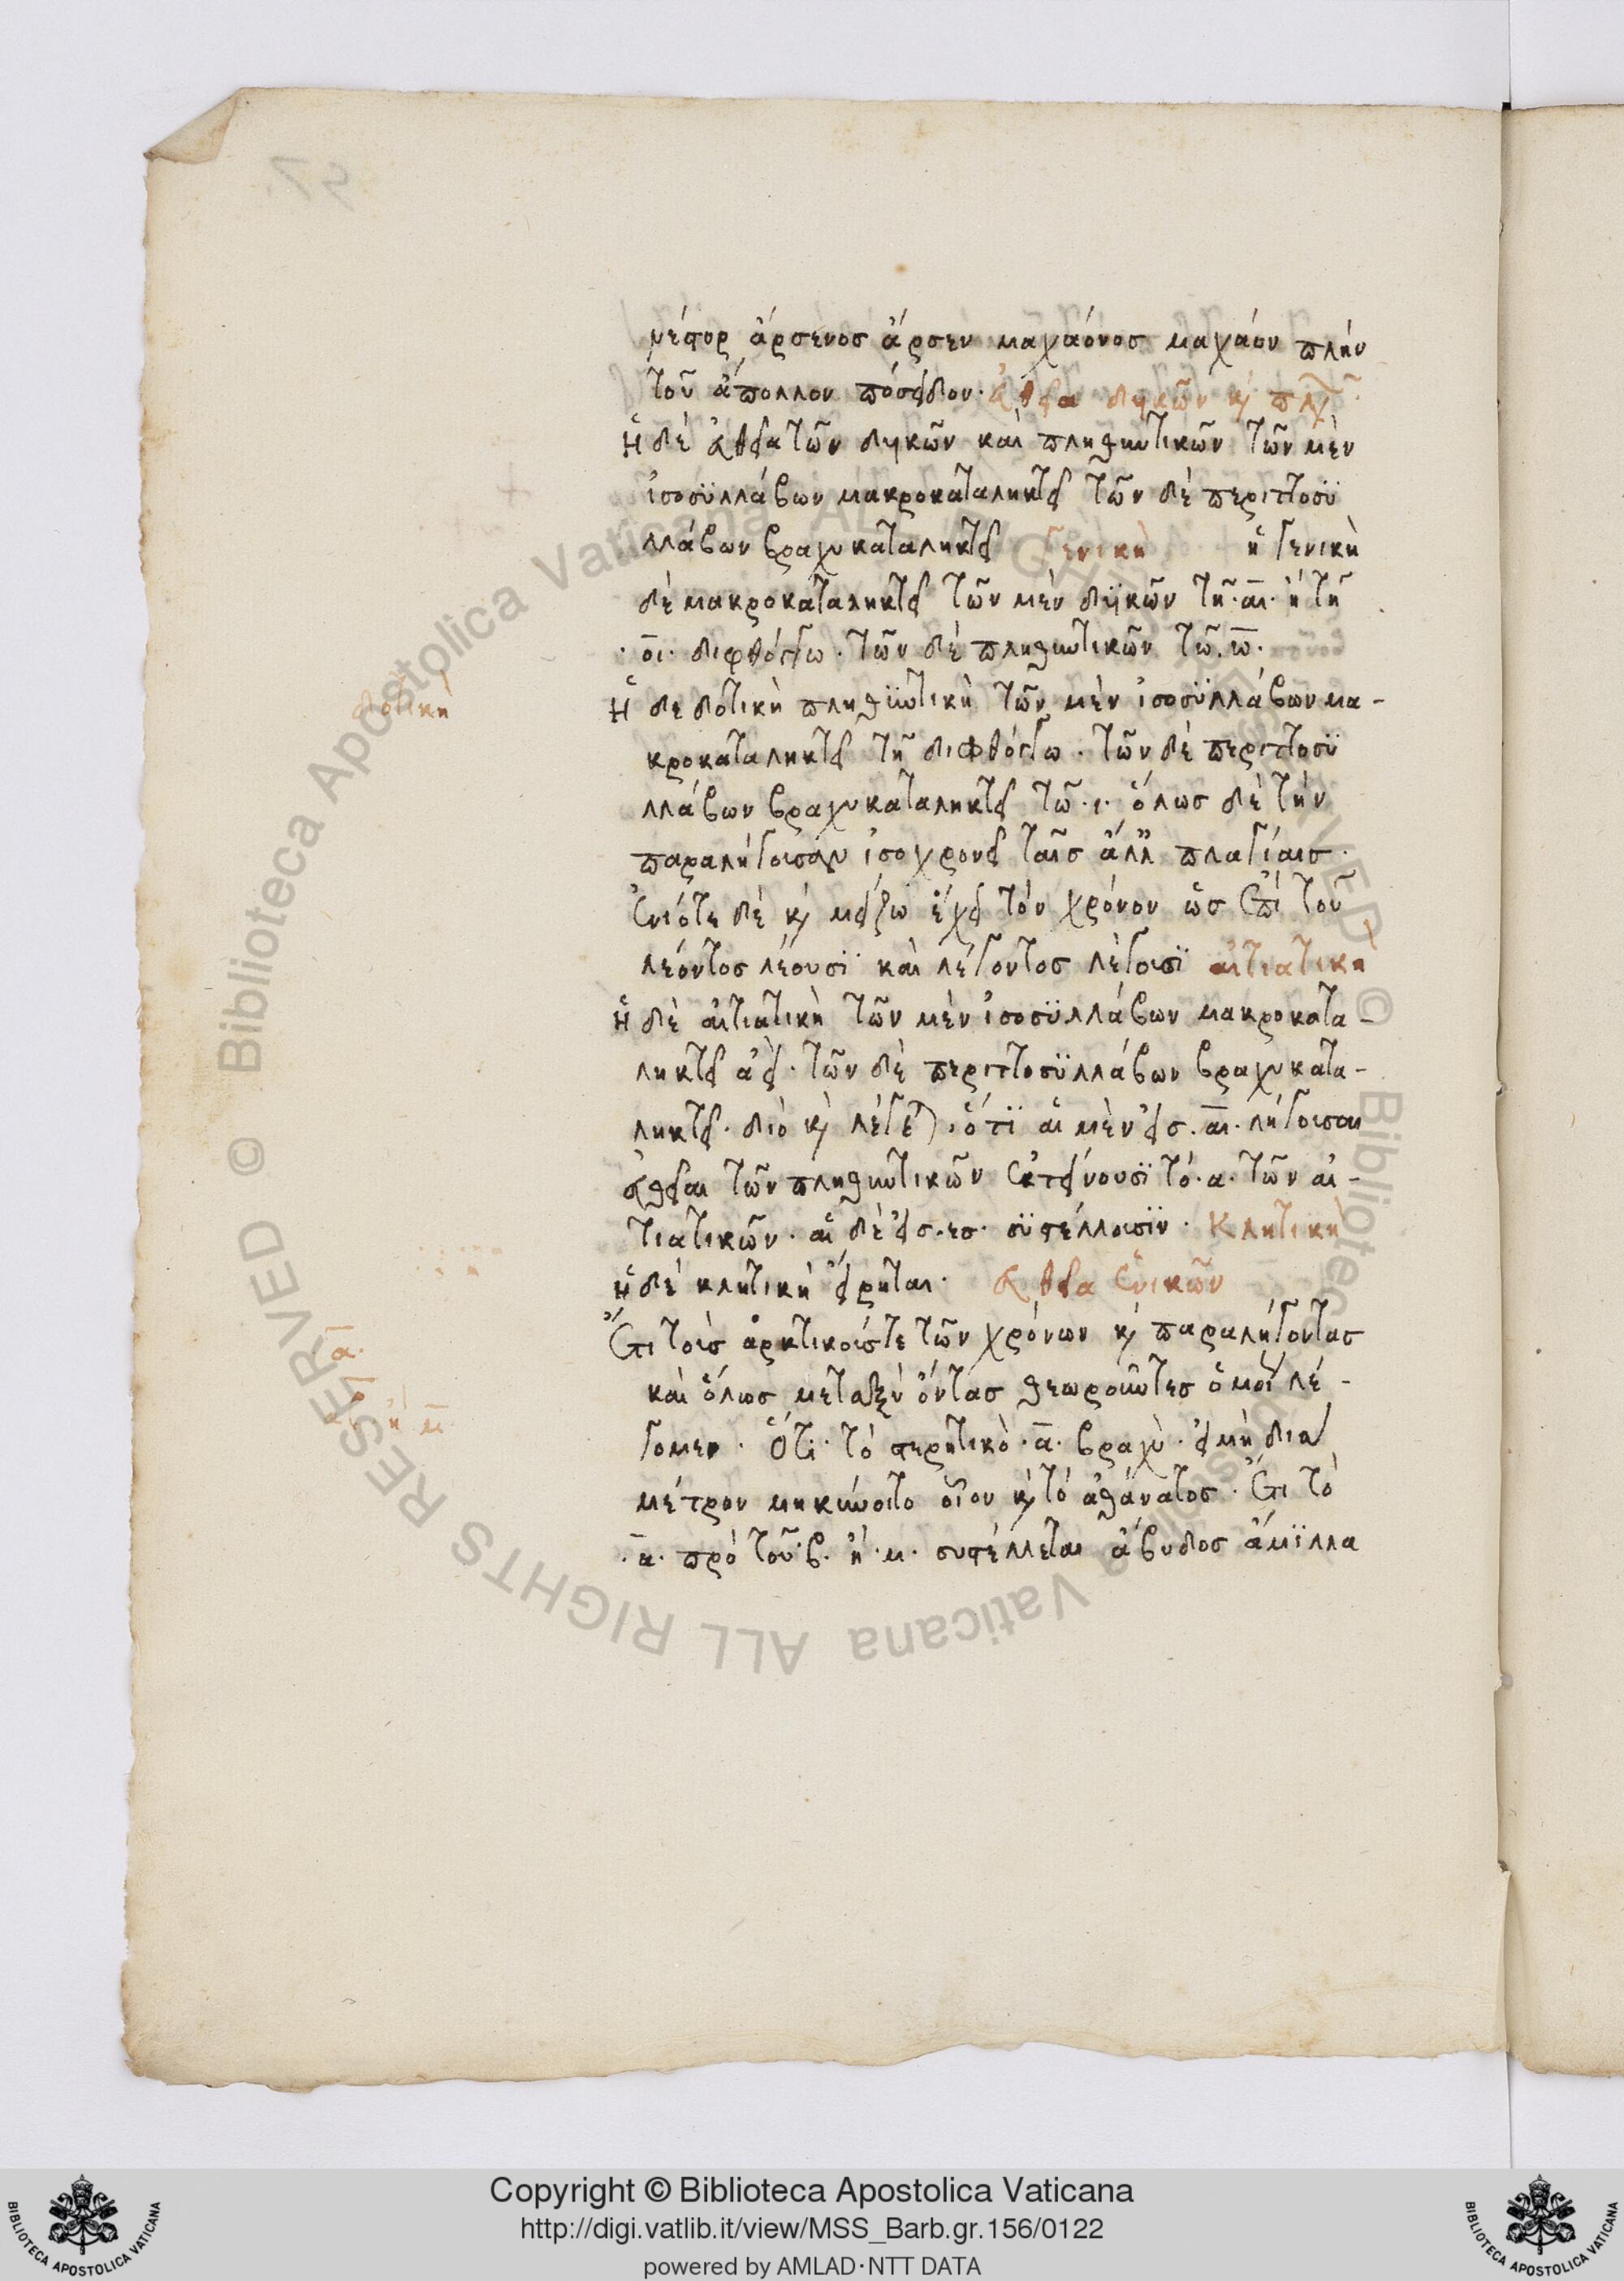 νέστορ ἄρσενος ἄρσεν μαχάονος μαχάον πλήν
τοῦ ἄπολλον πόσειδον. εὐθεῖα δυϊκῶν κ πλη
ἡ δὲ εὐθεῖα τῶν δυϊκῶν καὶ πληθυντικῶν τῶν μὲν
ἰσοσϋλλάβων μακροκαταληκτεῖ τῶν δὲ περιττοσϋ
λλάβων βραχυκαταληκτεῖ γενικὴ ἡ γενικὴ
δὲ μακροκαταληκτεῖ τῶν μὲν δυϊκῶν τῆ. αι. ἢ τῆ
. οι. διφθόγγω. τῶν δὲ πληθυντικῶν τῶ. ω.
δοτικὴ
ἡ δὲ δοτικὴ πληθυντικὴ τῶν μὲν ἰσοσϋλλάβων μα-
κροκαταληκτεῖ τῆ διφθόγγω. τῶν δὲ περιττοσϋ
λλάβων βραχυκαταληκτεῖ τῶ. ι. ὅλως δὲ τὴν
παραλήγουσαν ἰσοχρονεῖ ταῖς ἄλλ πλαγίαις.
ἐνίοτε δὲ κ μείζω ἔχει τὸν χρόνον ὡς ἐπὶ τοῦ
λέοντος λέουσϊ καὶ λέγοντος λέγουσϊ αἰτιατικὴ
ἡ δὲ αἰτιατικὴ τῶν μὲν ἰσοσϋλλάβων μακροκατα-
ληκτεῖ ἀεὶ. τῶν δὲ περιττοσϋλλάβων βραχυκατα-
ληκτεῖ. διὸ κ λέγεται. ὅτϊ αἱ μὲν εἰς. αι. λήγουσαι
εὐθεῖαι τῶν πληθυντικῶν ἐκτείνουσϊ τό. α. τῶν αἰ-
τιατικῶν. αἱ δὲ εἰς. ες. σϋστέλλουσϊν. κλητικὴ
ἡ δὲ κλητικὴ εἴρηται. εὐθεῖα ἑνικῶν
ἔτι τοὺς ἀρκτικούς τε τῶν χρόνων κ παραλήγοντας
α.
καὶ ὅλως μεταξὺ ὄντας θεωροῦντες ὁμοῦ λέ-
γομεν. ὅτι. τὸ στερητικὸ. α. βραχὺ. εἰ μὴ διὰ
μέτρον μηκύνοιτο οἷον κ τὸ ἀθάνατος. ἔτι τὸ
. α. πρὸ τοῦ. β. ἢ. μ. συστέλλεται ἄβυδος ἅμϊλλα
© Biblioteca Apostolica Vaticana ALL RIGHTS RESERVED
© Biblioteca Apostolica Vaticana ALL RIGHTS RESERVED
Copyright © Biblioteca Apostolica Vaticana
http://digi.vatlib.it/view/MSS_Barb.gr.156/0122
powered by AMLAD·NTT DATA
BIBLIOTECA APOSTOLICA VATICANA
BIBLIOTECA APOSTOLICA VATICANA